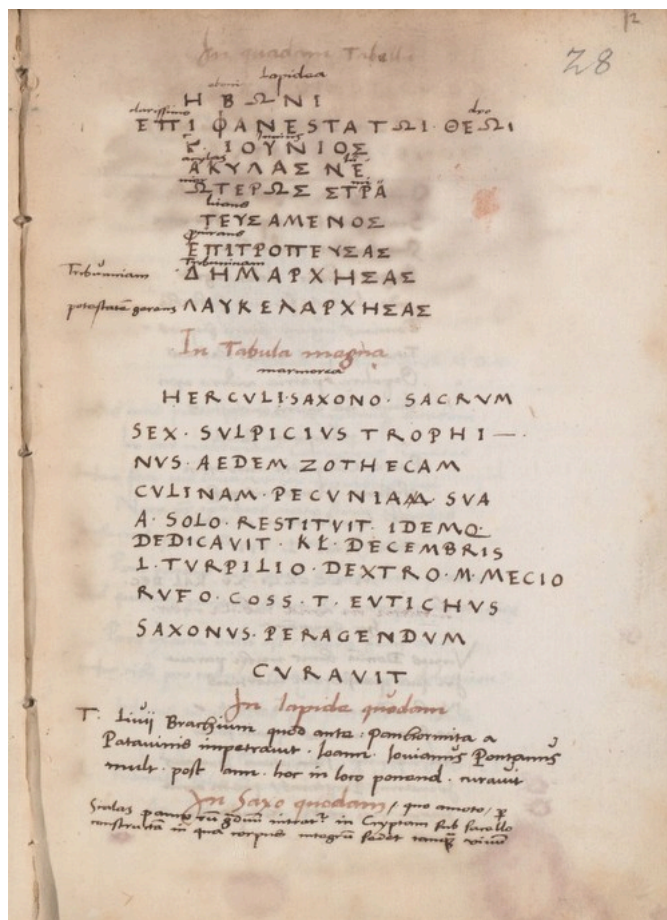 12
28
In quadam Tabella
lapidea
ΗΒΩΝΙ
clarissimo deo
ΕΠΙΦΑΝΕSΤΑΤΩΙ·ΘΕΩΙ
Iunius
Γ. ΙΟΥΝΙΟΣ
aquilas
ΑΚΥΛΑΣ ΝΕ
ΩΤΕΡΩΣ ΣΤΡΑ
ΤΕΥΣΑΜΕΝΟΣ
ΕΠΙΤΡΟΠΕΥΣΑΣ
Tribunitiam ΔΗΜΑΡΧΗΣΑΣ
potestatem gerens ΛΑΥΚΕΛΑΡΧΗΣΑΣ
In Tabula magna
marmorea
HERCULI·SAXONO·SACRVM
SEX·SVLPICIVS TROPHI—·
NVS·AEDEM ZOTHECAM
CVLINAM·PECVNIAM SVA
A·SOLO·RESTITVIT·IDEMQ
DEDICAVIT·KL·DECEMBRIS
L·TVRPILIO·DEXTRO·M·MECIO
RVFO·COSS·T·EVTICHVS
SAXONVS·PERAGENDVM
CVRAVIT
In lapide quodam
T. Livii Brachium quod ante: Panhormita a
Patavinis impetravit. Ioann. Iovianus Pontanus
mult. post ann. hoc in loco ponend. curavit
In Saxo quodam / quo amoto, p
in Cryptam sub sacello
constructā in qua corpus integrū sedet tamq̄ vivum